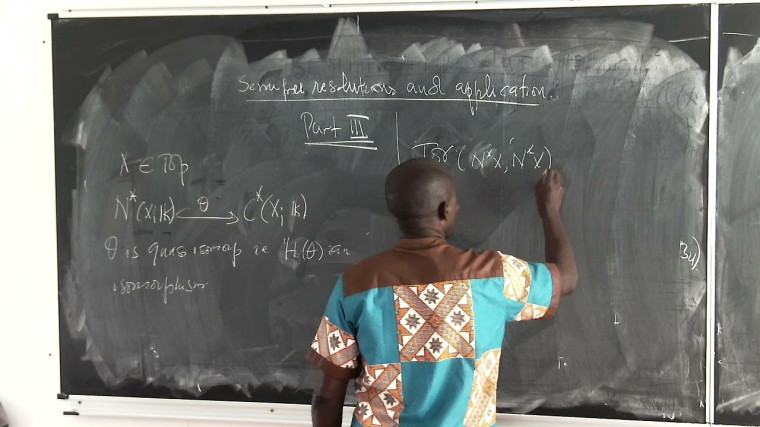 Semifree resolutions and application.
Part III
X ∈ Top
N*(X;lk) θ C*(X; lk)
θ is quas isomop ie H(θ) is an
isomorphism.
Tor (N*X, N*X)
34)